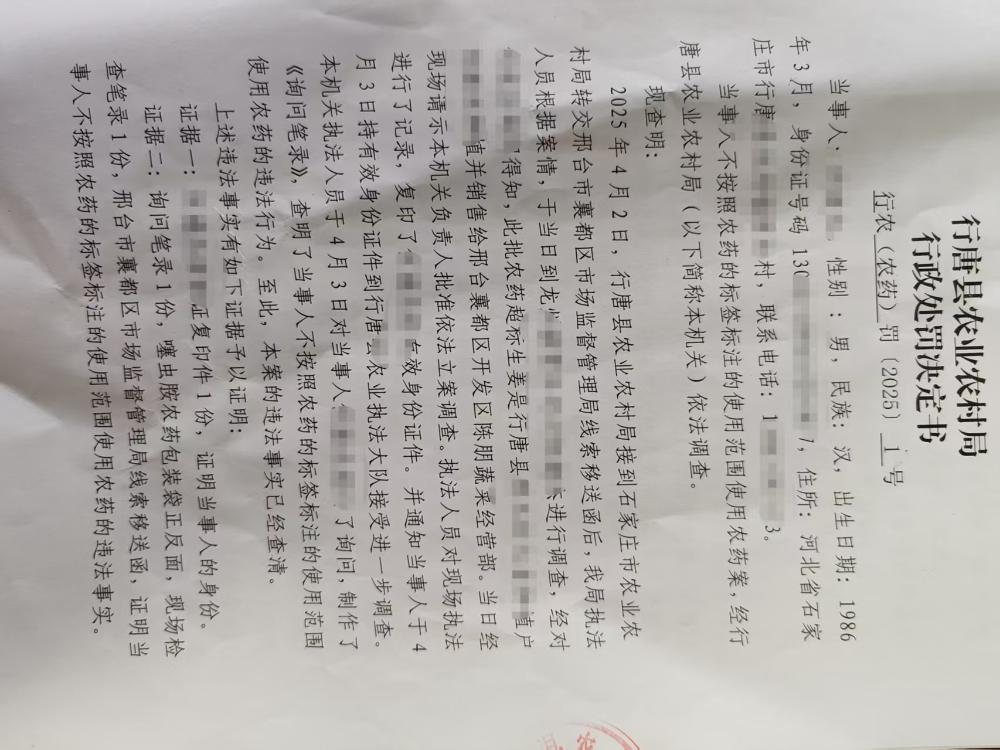 行唐县农业农村局
行政处罚决定书
行农（农药）罚〔2025〕1号
当事人： 性别：男，民族：汉，出生日期：1986
年3月，身份证号码130 7，住所：河北省石家
庄市行唐 村，联系电话：1 3。
当事人不按照农药的标签标注的使用范围使用农药案，经行
唐县农业农村局（以下简称本机关）依法调查。
现查明：
2025年4月2日，行唐县农业农村局接到石家庄市农业农
村局转交邢台市襄都区市场监督管理局线索移送函后，我局执法
人员根据案情，于当日到龙 进行调查，经对
得知，此批农药超标生姜是行唐县 植户
植并销售给邢台襄都区开发区陈朋蔬菜经营部。当日经
现场请示本机关负责人批准依法立案调查。执法人员对现场执法
进行了记录，复印了 有效身份证件。并通知当事人于4
月3日持有效身份证件到行唐县农业执法大队接受进一步调查。
本机关执法人员于4月3日对当事人 了询问，制作了
《询问笔录》，查明了当事人不按照农药的标签标注的使用范围
使用农药的违法行为。至此，本案的违法事实已经查清。
上述违法事实有如下证据予以证明：
证据一： 证复印件1份，证明当事人的身份。
证据二：询问笔录1份，噻虫胺农药包装袋正反面，现场检
查笔录1份，邢台市襄都区市场监督管理局线索移送函，证明当
事人不按照农药的标签标注的使用范围使用农药的违法事实。